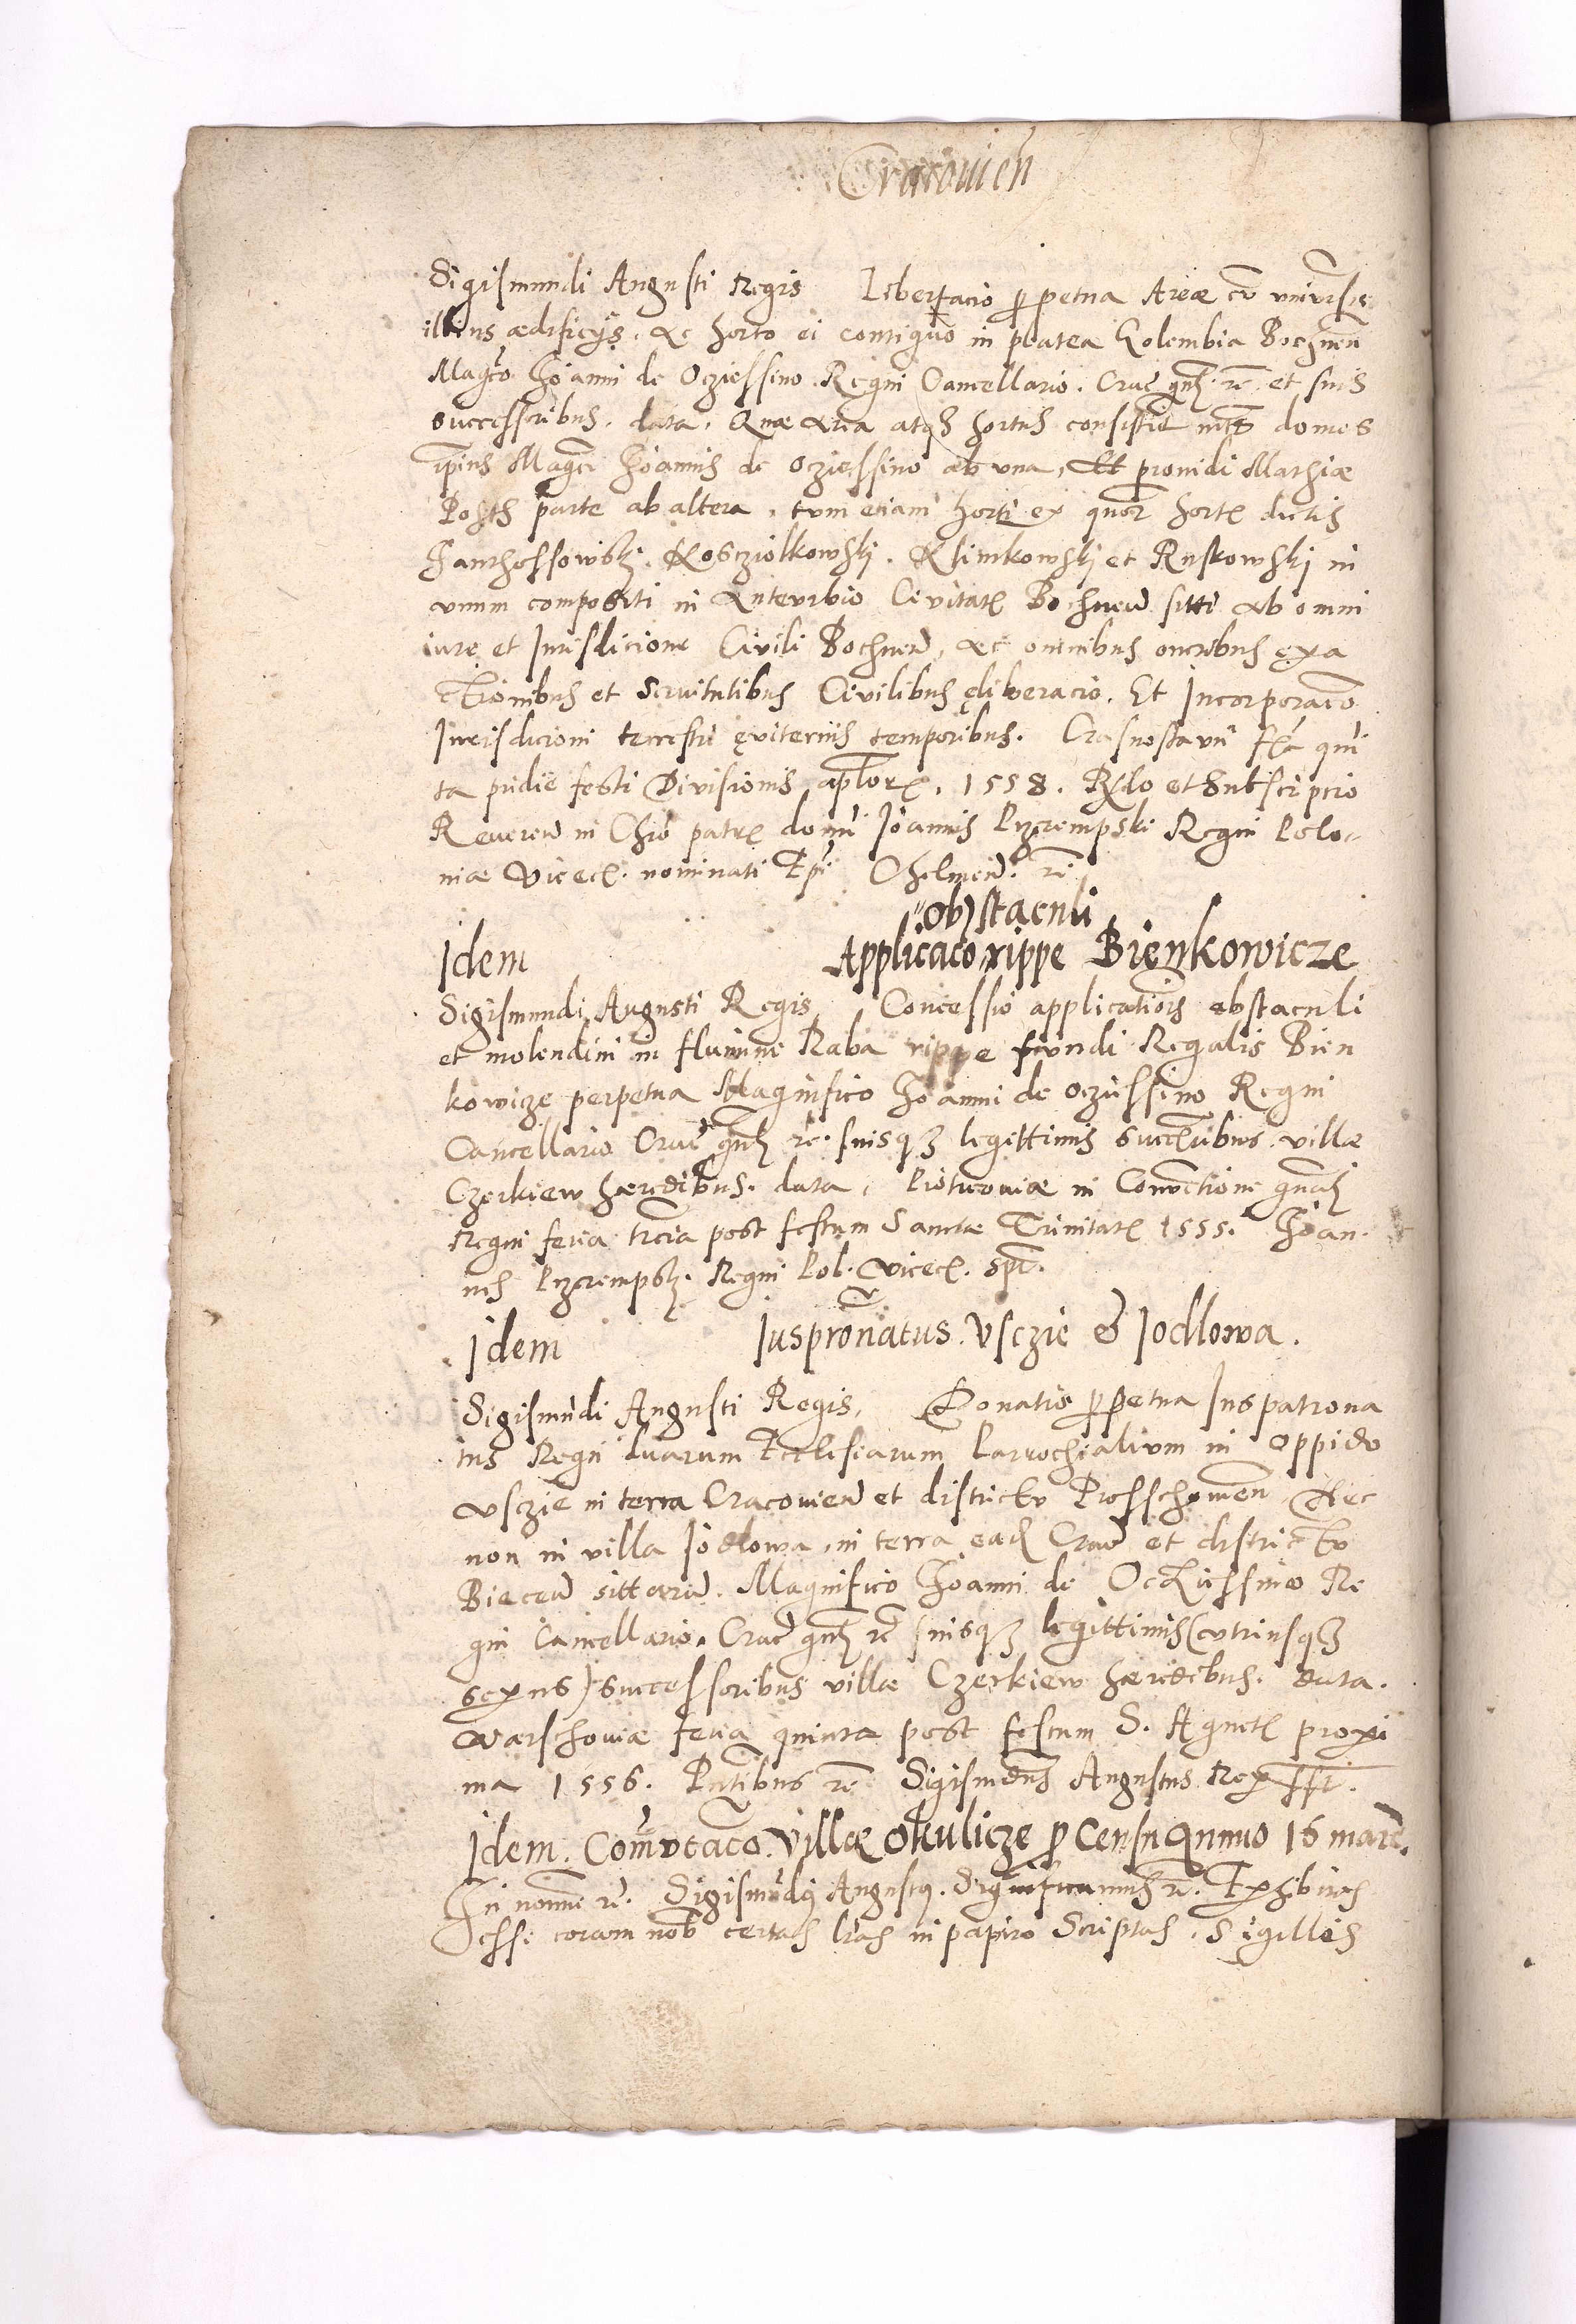 Cracouien
Sigismundi Augusti Regis Libertacio ppetua Areæ cu vniuersis
illius ædificijs. ac horto ei contiguo in platea Golembia Bochnen
Magco Joanni de Ocziessino Regni Cancellario. Crac gnli. re. et suis
successoribus. data. Quæ area atqz hortus consistit inter domos
ipius Magci Joannis de Ocziessino ab vna, Et prouidi Mathiæ
parte ab altera, tum etiam horti ex quor hort dictis
Janthossowski. Kosciolkowski. Klimkowski et Ruskowski in
vnum compositi in Anteurbio Ciuitat Bochnen sitti ab omni
iure et Jurisdicione Ciuili Bochnen, ac omnibus oneribus exa
ctionibus et seruitutibus Ciuilibus eliberacio. Et Incorporaco
Jurisdicioni terrestri euiternis temporibus. Crasnostaun fia quin
ta pridie festi Diuisionis aplor. 1558. Rlo et Subscripcio
Reueren in Chro patr domi Joannis Przerempski Regni Polo-
niæ Vicecl. nominati Epi Chelmen. re
Obstaculi
Idem Applicaco rippe Bienkowicze
Sigismundi Augusti Regis Concessio applicationis obstaculi
et molendini in flumine Raba rippe fundi Regalis Bien
kowicze perpetua Magnifico Joanni de Ocziessino Regni
Cancellario Crac gnli re. suisqz legittimis succesoribus villæ
Czerkiew hæredibus. data, Piotrcouiæ in Conuentione gnali
Regni feria tercia post festum Sanctæ Trinitat 1555. Joan-
nes Przerempski. Regni Pol. Vicecl. spt.
Idem Juspronatus. Vsczie et Jodlowa.
Sigismundi Augusti Regis, Donatio ppetua Jus patrona
tus Regni duarum Ecclesiarum Parrochialium in oppido
Vsczie in terra Cracouien et districtu Prosschouien, Nec
non in villa Jodlowa, in terra ead Crac et districtu
Biecen sittarum. Magnifico Joanni de Ocziessino Re
gni Cancellario. Crac gnli re suisqz legittimis (vtriusqz
sexus) successoribus villæ Czerkiew hæredibus. data.
Warschouiæ feria quinta post festum S. Agnet proxi
ma 1556. Pntibus re Sigismdus Augustus Rex sst.
Idem. Comutaco. Villæ Okulicze p Censu Annuo 16 marc.
In nomine re. Sigismudg Augustg. Significamus re. Exhibitas
esse coram nob certas lras in papiro Scriptas, Sigillis